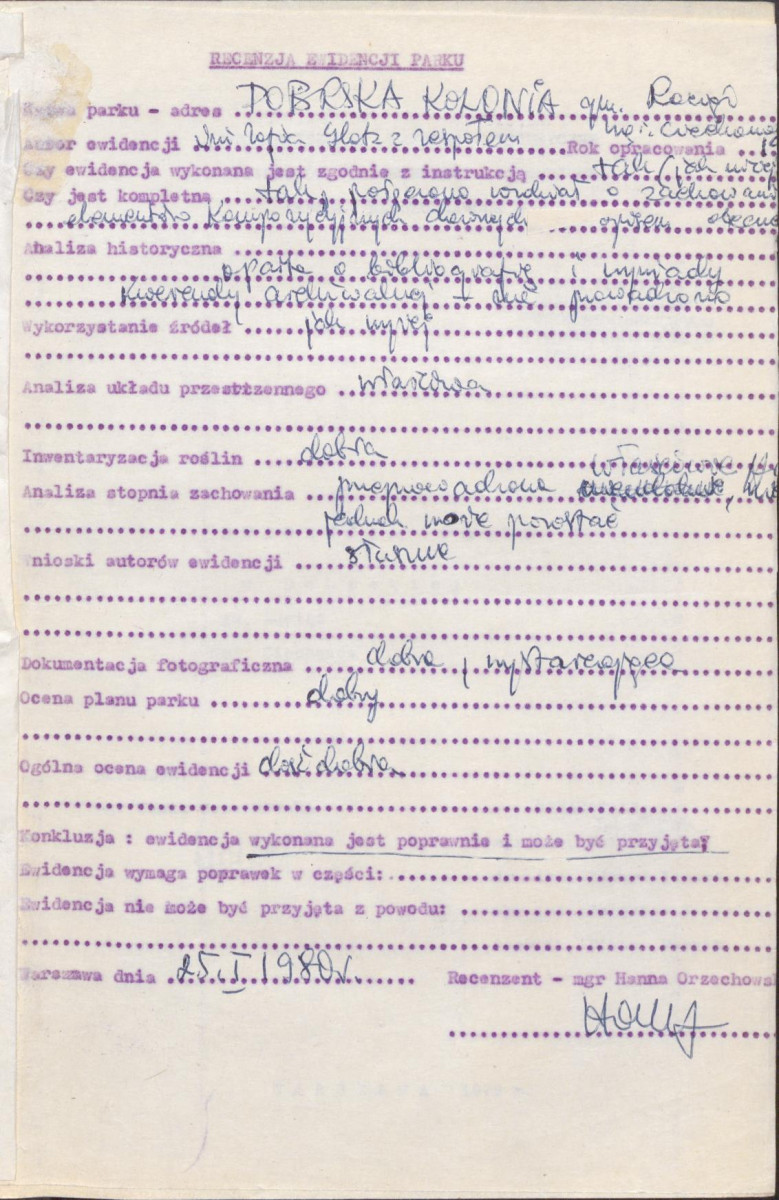 RECENZJA EWIDENCJI PARKU
Nazwa parku - adres DOBRSKA KOLONIA gm. Raciąż
Autor ewidencji z zespołem Rok opracowania
woj. Ciechano
Czy ewidencja wykonana jest zgodnie z instrukcją tak (jak niżej
Czy jest kompletna tak, o zachowaniu
elementów kompozycyjnych dawnych
Analiza historyczna
oparta o bibliografię i wywiady
kwerendy archiwalnej - nie prowadzono
Wykorzystanie źródeł jak wyżej
Analiza układu przestrzennego właściwa
Inwentaryzacja roślin dobra
właściwie
Analiza stopnia zachowania przeprowadzona
jednak może pozostać
Wnioski autorów ewidencji słuszne
Dokumentacja fotograficzna dobra, wystarczająca
Ocena planu parku dobry
Ogólna ocena ewidencji dość dobra
Konkluzja : ewidencja wykonana jest poprawnie i może być przyjęta
Ewidencja wymaga poprawek w części:
Ewidencja nie może być przyjęta z powodu:
Warszawa dnia 25.I 1980r. Recenzent - mgr Hanna Orzechows